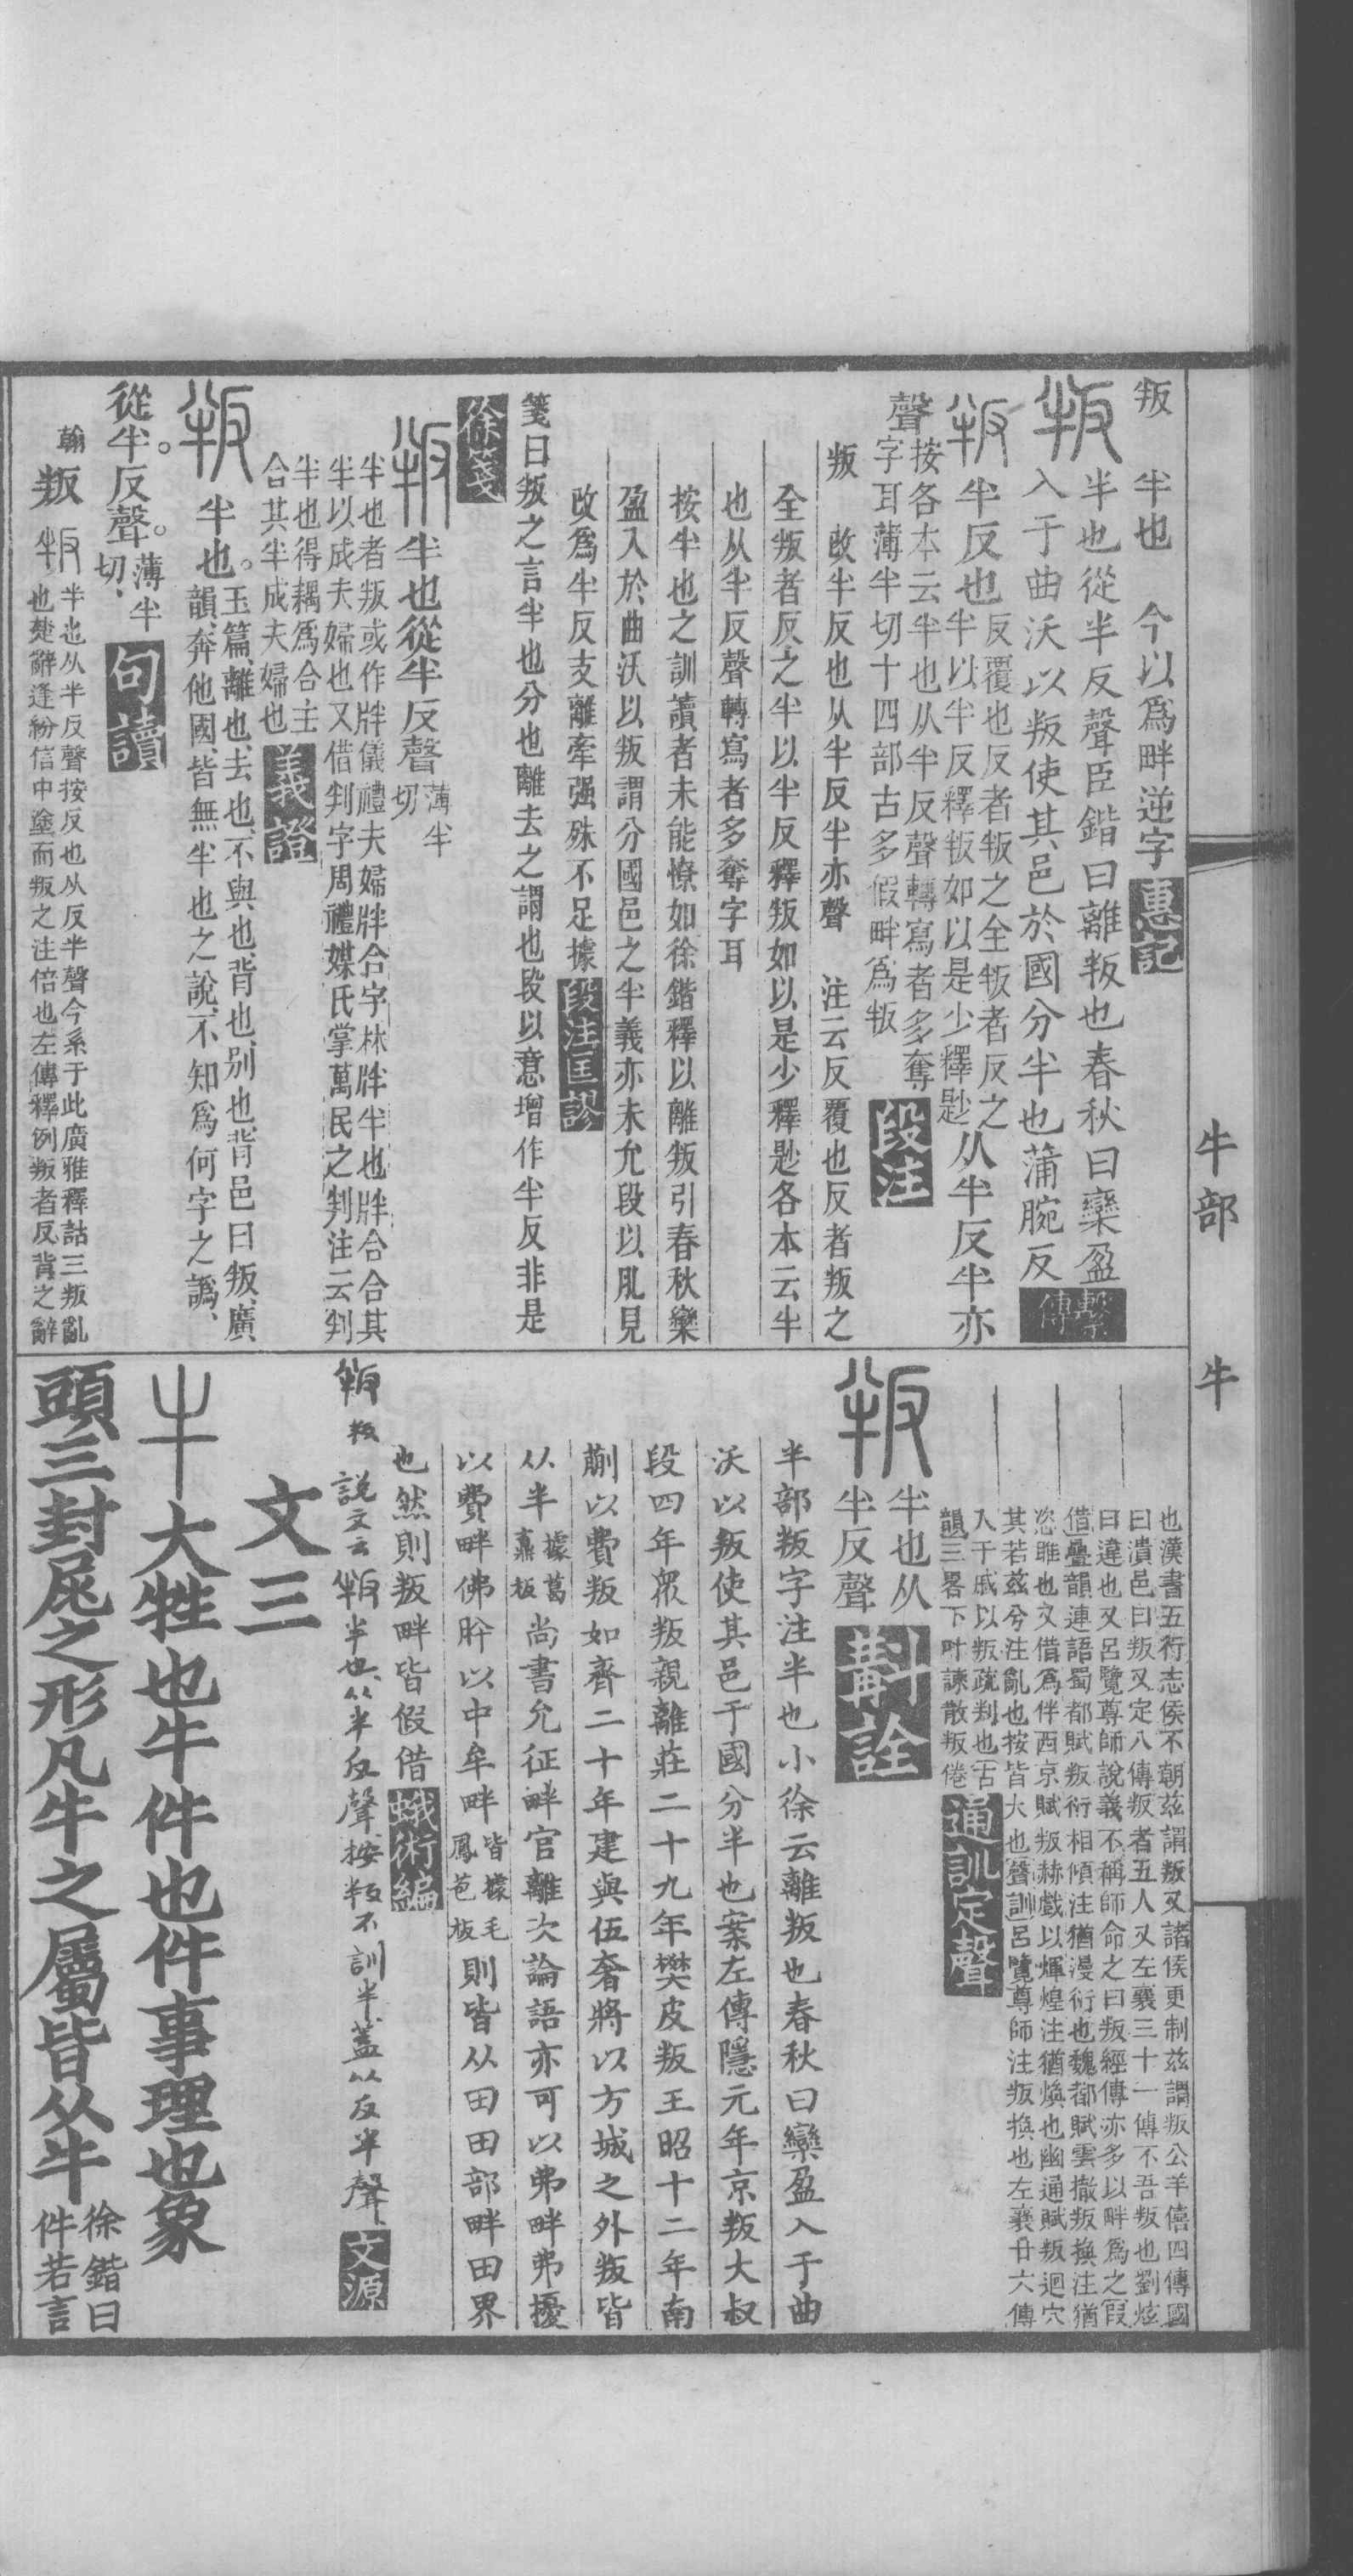 叛 半也 今以爲畔逆字 惠記
叛 半也從半反聲臣鍇曰離叛也春秋曰欒盈
入于曲沃以叛使其邑於國分半也蒲腕反 繫傳
叛 半反也 反覆也反者叛之全叛者反之
半以半反釋叛如以是少釋尟 从半反半亦
聲 按各本云半也从半反聲轉寫者多奪
字耳薄半切十四部古多假畔爲叛 段注
叛 改半反也从半反半亦聲 注云反覆也反者叛之
全叛者反之半以半反釋叛如以是少釋尟各本云半
也从半反聲轉寫者多奪字耳
按半也之訓讀者未能憭如徐鍇釋以離叛引春秋欒
盈入於曲沃以叛謂分國邑之半義亦未允段以肊見
改爲半反支離牽强殊不足據 段注匡謬
箋曰叛之言半也分也離去之謂也段以意增作半反非是
徐箋
叛 半也從半反聲 薄半
切
半也者叛或作牉儀禮夫婦牉合字林牉半也牉合合其
半以成夫婦也又借判字周禮媒氏掌萬民之判注云判
半也得耦爲合主
合其半成夫婦也 義證
叛 半也。玉篇、離也、去也、不與也、背也、别也、背邑曰叛、廣
韻、奔他國、皆無半也之說、不知爲何字之譌、
從半。反聲。薄半
切、 句讀
翰 叛 叛 半也从半反聲按反也从反半聲今系于此廣雅釋詁三叛亂
也楚辭逢紛信中塗而叛之注倍也左傳釋例叛者反背之辭
牛部 牛
也漢書五行志侯不朝茲謂叛又諸侯更制茲謂叛公羊僖四傳國
曰潰邑曰叛又定八傳叛者五人又左襄三十一傳不吾叛也劉炫
曰違也又呂覽尊師說義不稱師命之曰叛經傳亦多以畔爲之叚
借疊韻連語蜀都賦叛衍相傾注猶漫衍也魏都賦雲撤叛換注猶
恣睢也又借爲伴西京賦叛赫戲以煇煌注猶煥也幽通賦叛迴穴
其若茲兮注亂也按皆大也聲訓呂覽尊師注叛換也左襄廿六傳
入于戚以叛疏判也古
韻三畧下叶諫散叛倦 通訓定聲
叛 半也从
半反聲 斠詮
半部叛字注半也小徐云離叛也春秋曰欒盈入于曲
沃以叛使其邑于國分半也案左傳隱元年京叛大叔
段四年眾叛親離莊二十九年樊皮叛王昭十二年南
蒯以費叛如齊二十年建與伍奢將以方城之外叛皆
从半 據葛
鼒板 尚書允征畔官離次論語亦可以弗畔弗擾
以費畔佛肸以中牟畔 皆據毛
鳳苞板 則皆从田田部畔田界
也然則叛畔皆假借 蛾術編
叛 叛 説文云叛半也、从半反聲按叛不訓半蓋从反半聲、文源
文三
牛 大牲也牛件也件事理也象
頭三封𡰯之形凡牛之屬皆从牛 徐鍇曰
件若言